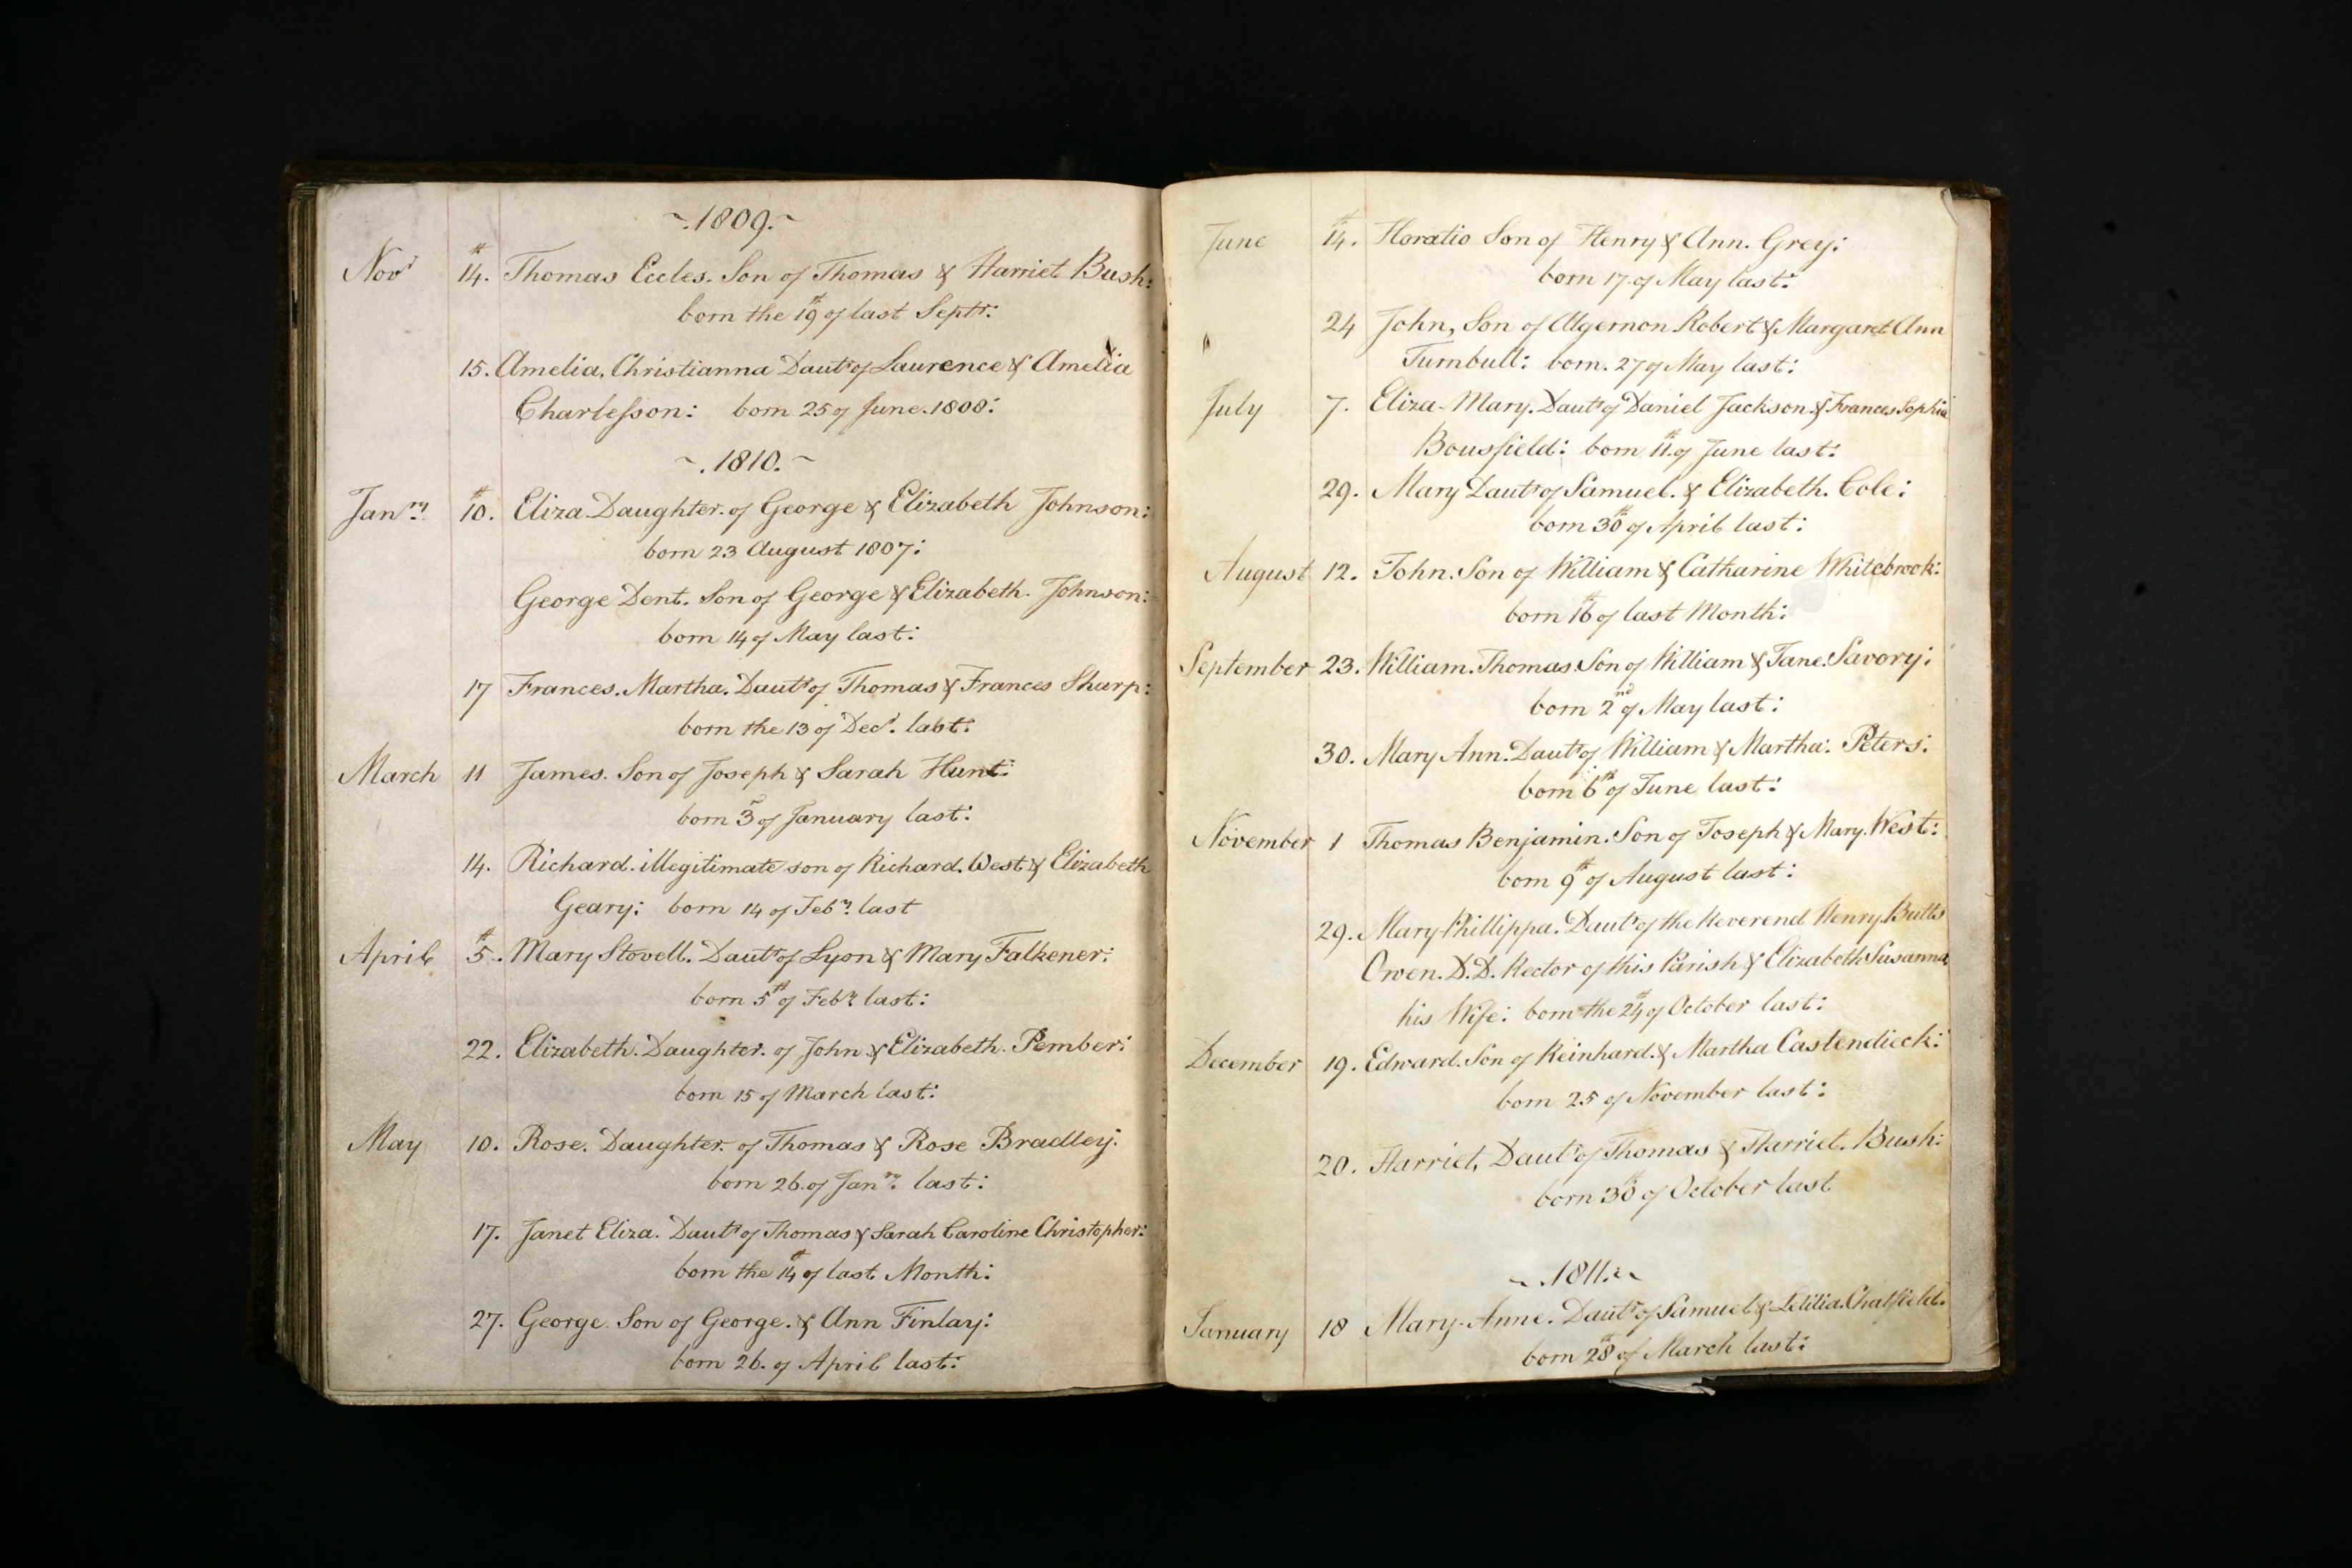 ~.1809.~
Novr 14th. Thomas Eccles. Son of Thomas & Harriet Bush:
born the 19th of last Septr:
15. Amelia, Christianna Dautr of Laurence & Amelia
Charlesson: born 25 of June. 1808:
~.1810.~
Janry 10th. Eliza Daughter. of George & Elizabeth Johnson:
born 23 August 1807:
George Dent. Son of George & Elizabeth. Johnson:
born 14 of May last:
17 Frances. Martha. Dautr of Thomas & Frances Sharp:
born the 13 of Decr. last:
March 11 James. Son of Joseph & Sarah Hunt:
born 3d of January last:
14. Richard. illegitimate son of Richard. West & Elizabeth
Geary: born 14 of Feby. last
April 5th. Mary Stovell. Dautr of Lyon & Mary Falkener:
born 5th of Feby. last:
22. Elizabeth. Daughter. of John & Elizabeth. Pember:
born 15 of March last:
May 10. Rose. Daughter. of Thomas & Rose Bradley:
born 26. of Janry. last:
17. Janet Eliza. Dautr of Thomas & Sarah Caroline Christopher:
born the 14th of last Month:
27. George. Son of George. & Ann Finlay:
born 26. of April last:
June 14th. Horatio Son of Henry & Ann. Grey:
born 17 of May last:
24 John, Son of Algernon Robert & Margaret Ann
Turnbull: born. 27 of May last:
July 7. Eliza-Mary. Dautr of Daniel Jackson. & Frances Sophia
Bousfield: born 11th of June last:
29. Mary Dautr of Samuel. & Elizabeth. Cole:
born 30th of April last:
August 12. John. Son of William & Catharine Whitebrook:
born 16th of last Month:
September 23. William. Thomas. Son of William & Jane. Savory:
born 2nd of May last:
30. Mary Ann. Dautr of William & Martha. Peters:
born 6th of June last:
November 1 Thomas Benjamin. Son of Joseph & Mary. West:
born 9th of August last:
29. Mary Phillippa. Dautr of the Reverend Henry Butts
Owen. D.D. Rector of this Parish & Elizabeth Susanna
his Wife: born the 24th of October last:
December 19. Edward. Son of Reinhard. & Martha Castendieck:
born 25 of November last:
20. Harriet, Dautr of Thomas & Harriet. Bush:
born 30th of October last
~.1811.~
January 18 Mary-Anne. Dautr of Samuel & Letitia. Chatfield.
born 28th of March last: